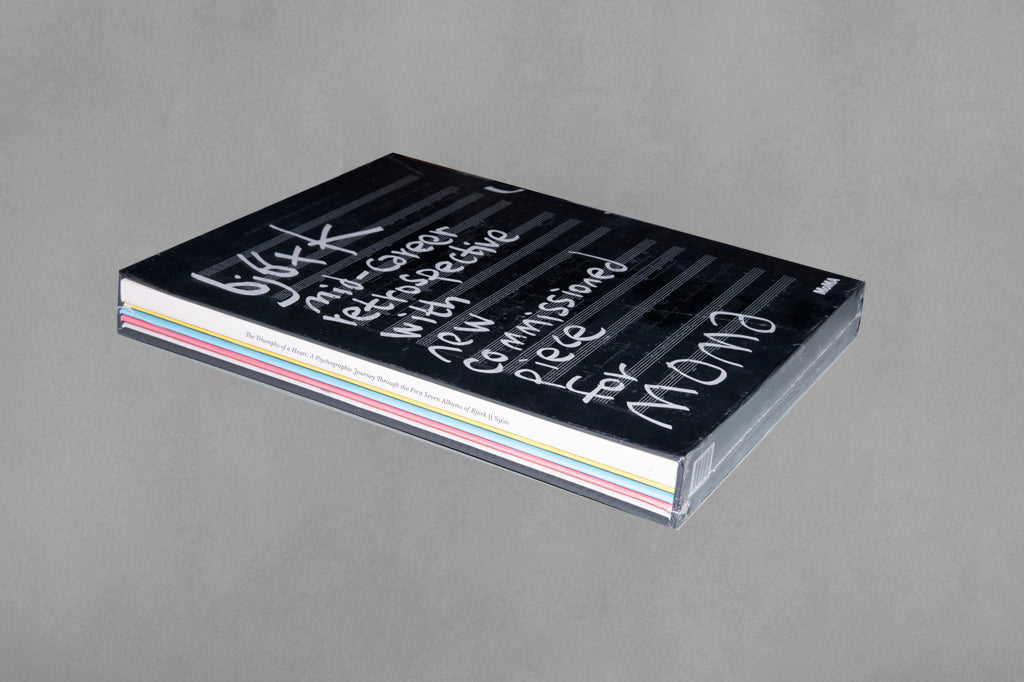 björk
mid-career
retrospective
with
new
commissioned
piece
for
MOMA
MoMA
The Triumphs of a Heart: A Psychographic Journey Through the First Seven Albums of Björk || Sjón